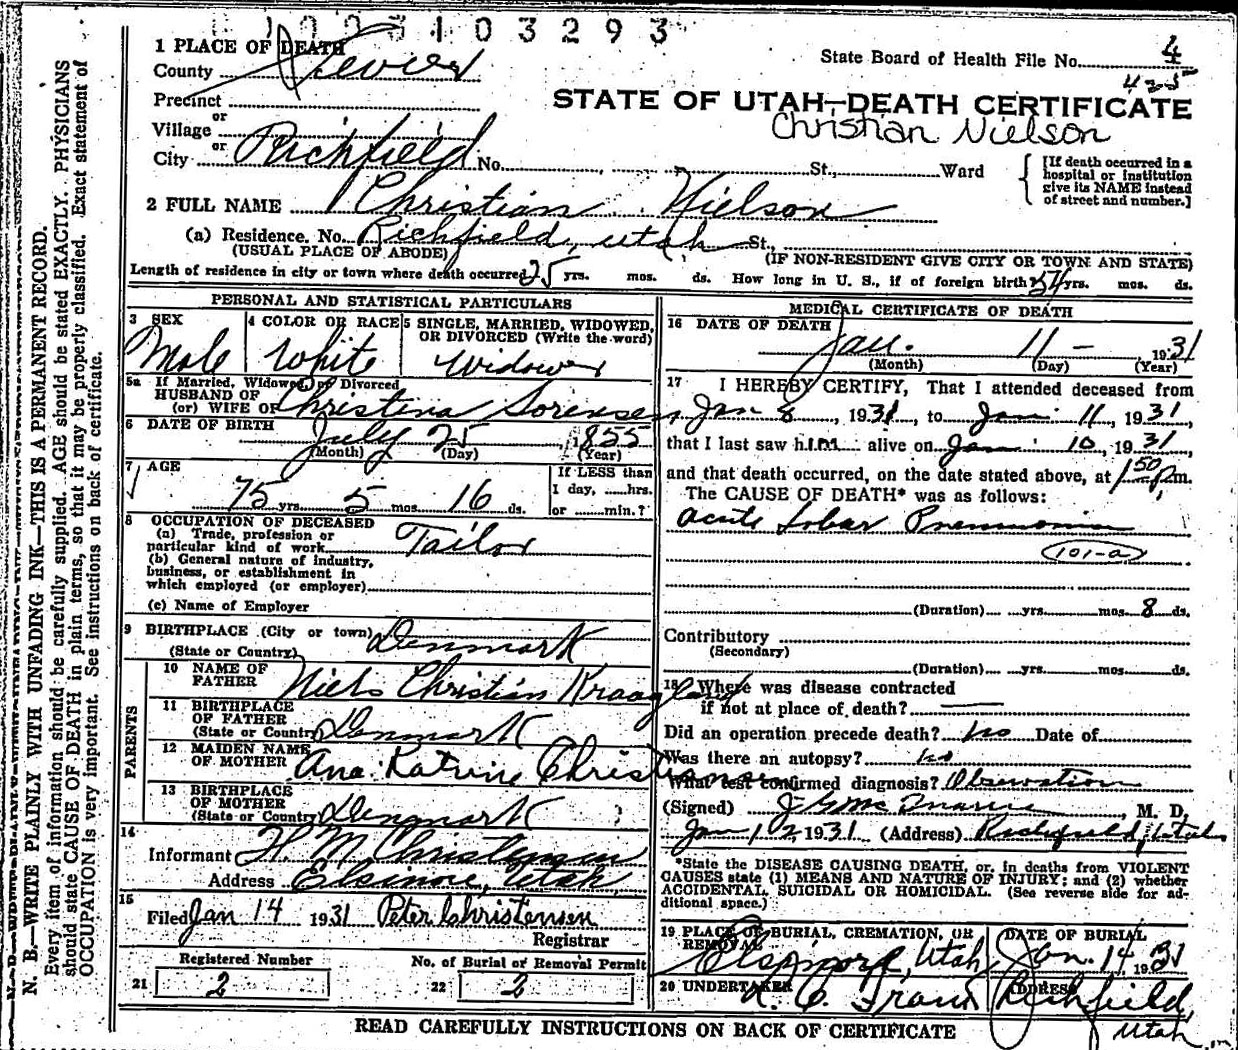 1 2 3 1 0 3 2 9 3
1 PLACE OF DEATH
County Sevier
State Board of Health File No. 4
425
Precinct
or
Village
or
City Richfield No. St., Ward
STATE OF UTAH—DEATH CERTIFICATE
Christian Nielson
[If death occurred in a
hospital or institution
give its NAME instead
of street and number.]
2 FULL NAME Christian Nielson
(a) Residence. No. Richfield, Utah St.,
(USUAL PLACE OF ABODE) (IF NON-RESIDENT GIVE CITY OR TOWN AND STATE)
Length of residence in city or town where death occurred 25 yrs. mos. ds. How long in U. S., if of foreign birth? 54 yrs. mos. ds.
PERSONAL AND STATISTICAL PARTICULARS
3 SEX
Male
4 COLOR OR RACE
White
5 SINGLE, MARRIED, WIDOWED,
OR DIVORCED (Write the word)
Widower
5a If Married, Widowed, or Divorced
HUSBAND OF
(or) WIFE OF Christena Sorensen
6 DATE OF BIRTH July 25, 1855
(Month) (Day) (Year)
7 AGE
75 yrs. 5 mos. 16 ds.
If LESS than
1 day, ......hrs.
or ......min.?
8 OCCUPATION OF DECEASED
(a) Trade, profession or
particular kind of work Tailor
(b) General nature of industry,
business, or establishment in
which employed (or employer)
(c) Name of Employer
9 BIRTHPLACE (City or town) Denmark
(State or Country)
PARENTS
10 NAME OF
FATHER Niels Christian Kraagland
11 BIRTHPLACE
OF FATHER
(State or Country) Denmark
12 MAIDEN NAME
OF MOTHER Ana Katrine Christiansen
13 BIRTHPLACE
OF MOTHER
(State or Country) Denmark
14
Informant H. M. Christensen
Address Elsinore, Utah
15
Filed Jan 14 1931 Peter Christensen
Registrar
Registered Number
21 2
No. of Burial or Removal Permit
22 2
MEDICAL CERTIFICATE OF DEATH
16 DATE OF DEATH
Jan. 11 — , 1931
(Month) (Day) (Year)
17 I HEREBY CERTIFY, That I attended deceased from
Jan 8, 1931, to Jan. 11, 1931,
that I last saw him alive on Jan. 10, 1931,
and that death occurred, on the date stated above, at 1 50 p.m.
The CAUSE OF DEATH* was as follows:
Acute Lobar Pneumonia
101-a
(Duration) yrs. mos. 8 ds.
Contributory
(Secondary)
(Duration) yrs. mos. ds.
18 Where was disease contracted
if not at place of death? —
Did an operation precede death? no Date of
Was there an autopsy? no
What test confirmed diagnosis? Observation
(Signed) M. D.
Jan 12 1931 (Address) Richfield, Utah
*State the DISEASE CAUSING DEATH, or, in deaths from VIOLENT
CAUSES state (1) MEANS AND NATURE OF INJURY; and (2) whether
ACCIDENTAL SUICIDAL OR HOMICIDAL. (See reverse side for ad-
ditional space.)
19 PLACE OF BURIAL, CREMATION, OR
REMOVAL
Elsinore, Utah
DATE OF BURIAL
Jan. 14 1931
20 UNDERTAKER
ADDRESS
Richfield,
Utah
READ CAREFULLY INSTRUCTIONS ON BACK OF CERTIFICATE
N. B.—WRITE PLAINLY WITH UNFADING INK—THIS IS A PERMANENT RECORD.
Every item of information should be carefully supplied. AGE should be stated EXACTLY. PHYSICIANS
should state CAUSE OF DEATH in plain terms, so that it may be properly classified. Exact statement of
OCCUPATION is very important. See instructions on back of certificate.